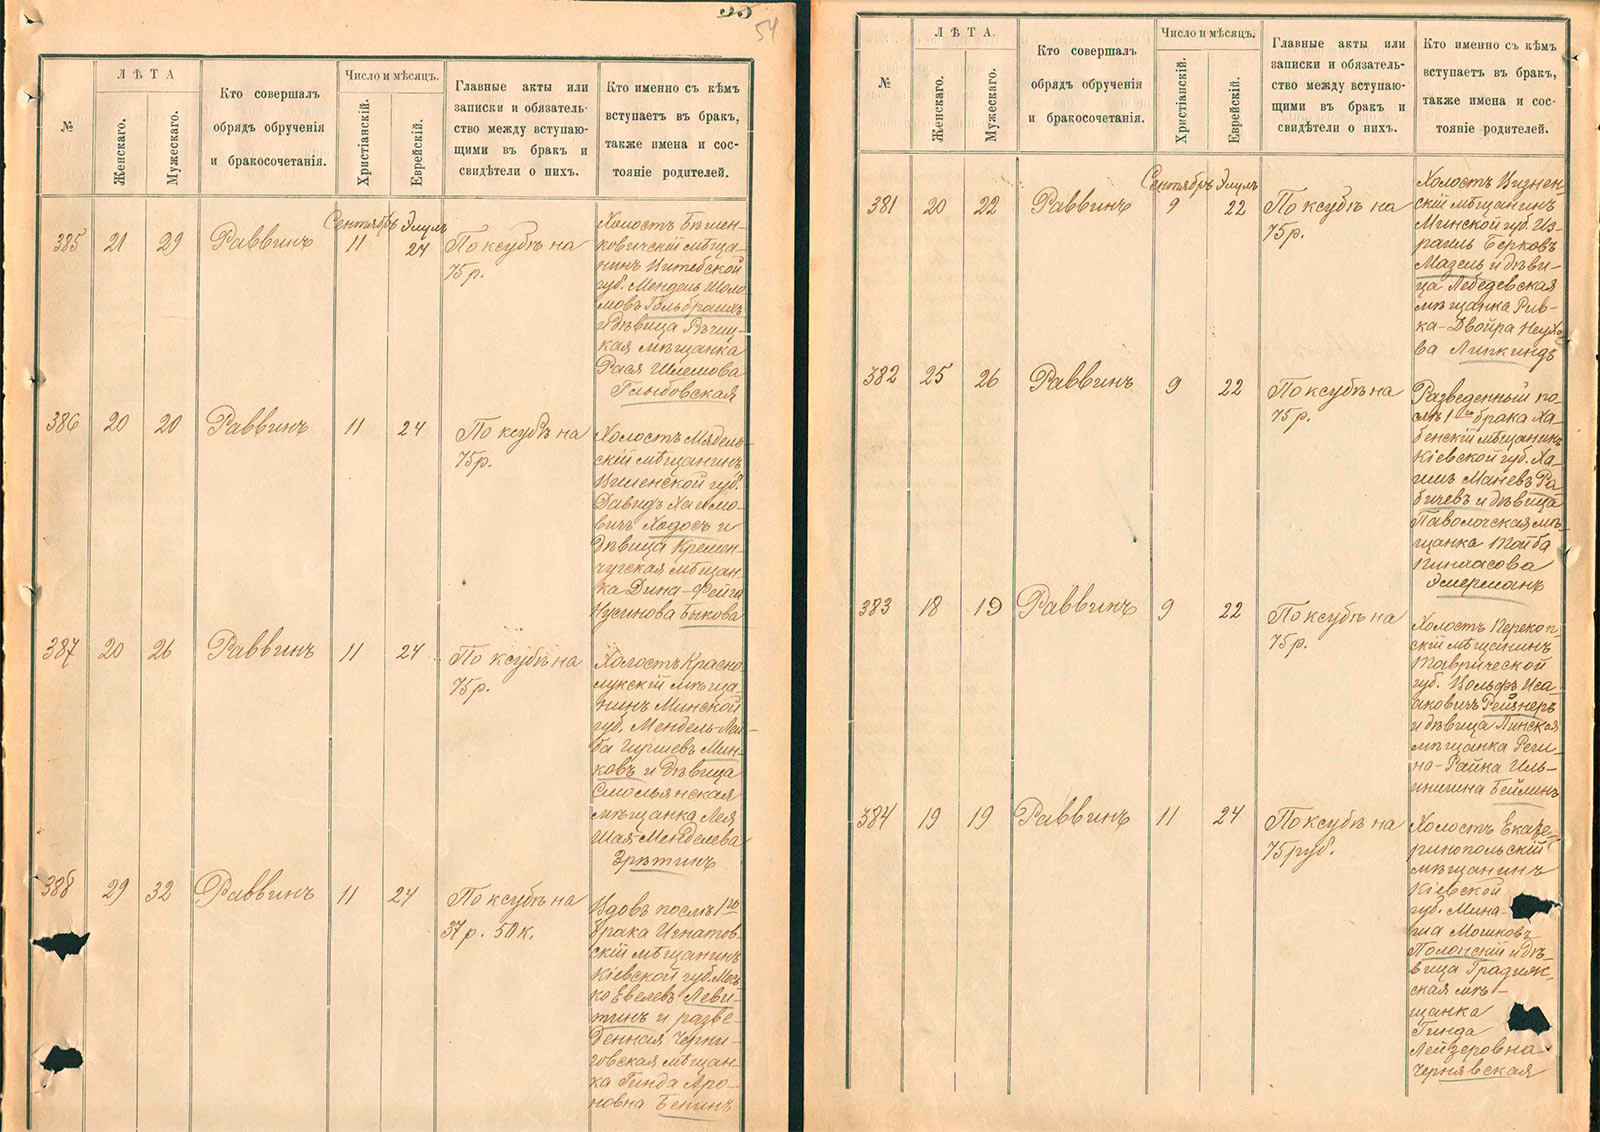 54
№
ЛѢТА
Женскаго.
Мужескаго.
Кто совершалъ
обрядъ обрученія
и бракосочетанія.
Число и мѣсяцъ.
Христіанскій.
Еврейскій.
Главные акты или
записки и обязатель-
ство между вступаю-
щими въ бракъ и
свидѣтели о нихъ.
Кто именно съ кѣмъ
вступаетъ въ бракъ,
также имена и сос-
тояніе родителей.
385 21 29 Раввинъ Сентябрь 11 Элулъ 24
По ксубѣ на
75р.
Холостъ Бѣшен-
ковичскій мѣща-
нинъ Витебской
губ. Мендель Шоло
мовъ Гольбрайхъ
и дѣвица Рѣчиц-
кая мѣщанка
Рася Шлемова
Глыбовская
386 20 20 Раввинъ 11 24
По ксубѣ на
75р.
Холостъ Мядель-
скій мѣщанинъ
Виленской губ.
Давидъ Хаимо-
вичъ Ходосъ и
дѣвица Кремен-
чугская мѣщан-
ка Дина-Фейга
Нусинова Быкова
387 20 26 Раввинъ 11 24
По ксубѣ на
75р.
Холостъ Красно
лукскій мѣща-
нинъ Минской
губ. Мендель-Лей-
ба Гиршевъ Мин-
ковъ и дѣвица
Смольянская
мѣщанка Лея
Шая-Менделева
388 29 32 Раввинъ 11 24
По ксубѣ на
37р. 50к.
Вдовъ послѣ 1го
брака Игнатов-
скій мѣщанинъ
Кіевской губ. Мось-
ко Евелевъ Леви-
тинъ и разве-
денная Черни-
говская мѣщан-
ка Гинда Аро-
новна
№
ЛѢТА.
Женскаго.
Мужескаго.
Кто совершалъ
обрядъ обрученія
и бракосочетанія.
Число и мѣсяцъ.
Христіанскій.
Еврейскій.
Главные акты или
записки и обязатель-
ство между вступаю-
щими въ бракъ и
свидѣтели о нихъ.
Кто именно съ кѣмъ
вступаетъ въ бракъ,
также имена и сос-
тояніе родителей.
381 20 22 Раввинъ Сентябрь 9 Элулъ 22
По ксубѣ на
75р.
Холостъ
скій мѣщанинъ
Минской губ. Из-
раиль Берковъ
Мазель и дѣви-
ца Лебедевская
мѣщанка Рив-
ка-Двойра Неуха-
ва Липкиндъ
382 25 26 Раввинъ 9 22
По ксубѣ на
75р.
Разведенный по-
слѣ 1го брака Ха-
бенскій мѣщанинъ
Кіевской губ. Ха-
имъ Маневъ Ра-
бичевъ и дѣвица
Паволочская мѣ-
щанка Тойба
Пинхасова
383 18 19 Раввинъ 9 22
По ксубѣ на
75р.
Холостъ Перекоп-
скій мѣщанинъ
Таврической
губ. Вольфъ Иса-
аковичъ Рейзнеръ
и дѣвица Пинская
мѣщанка Реги-
на-Райка Иль-
инишна Бейлинъ
384 19 19 Раввинъ 11 24
По ксубѣ на
75руб.
Холостъ Екате-
ринопольскій
мѣщанинъ
Кіевской
губ. Мина-
ша Мошковъ
Полонскій и дѣ-
вица Градиж-
ская мѣ-
щанка
Гинда
Лейзеровна
Чернявская